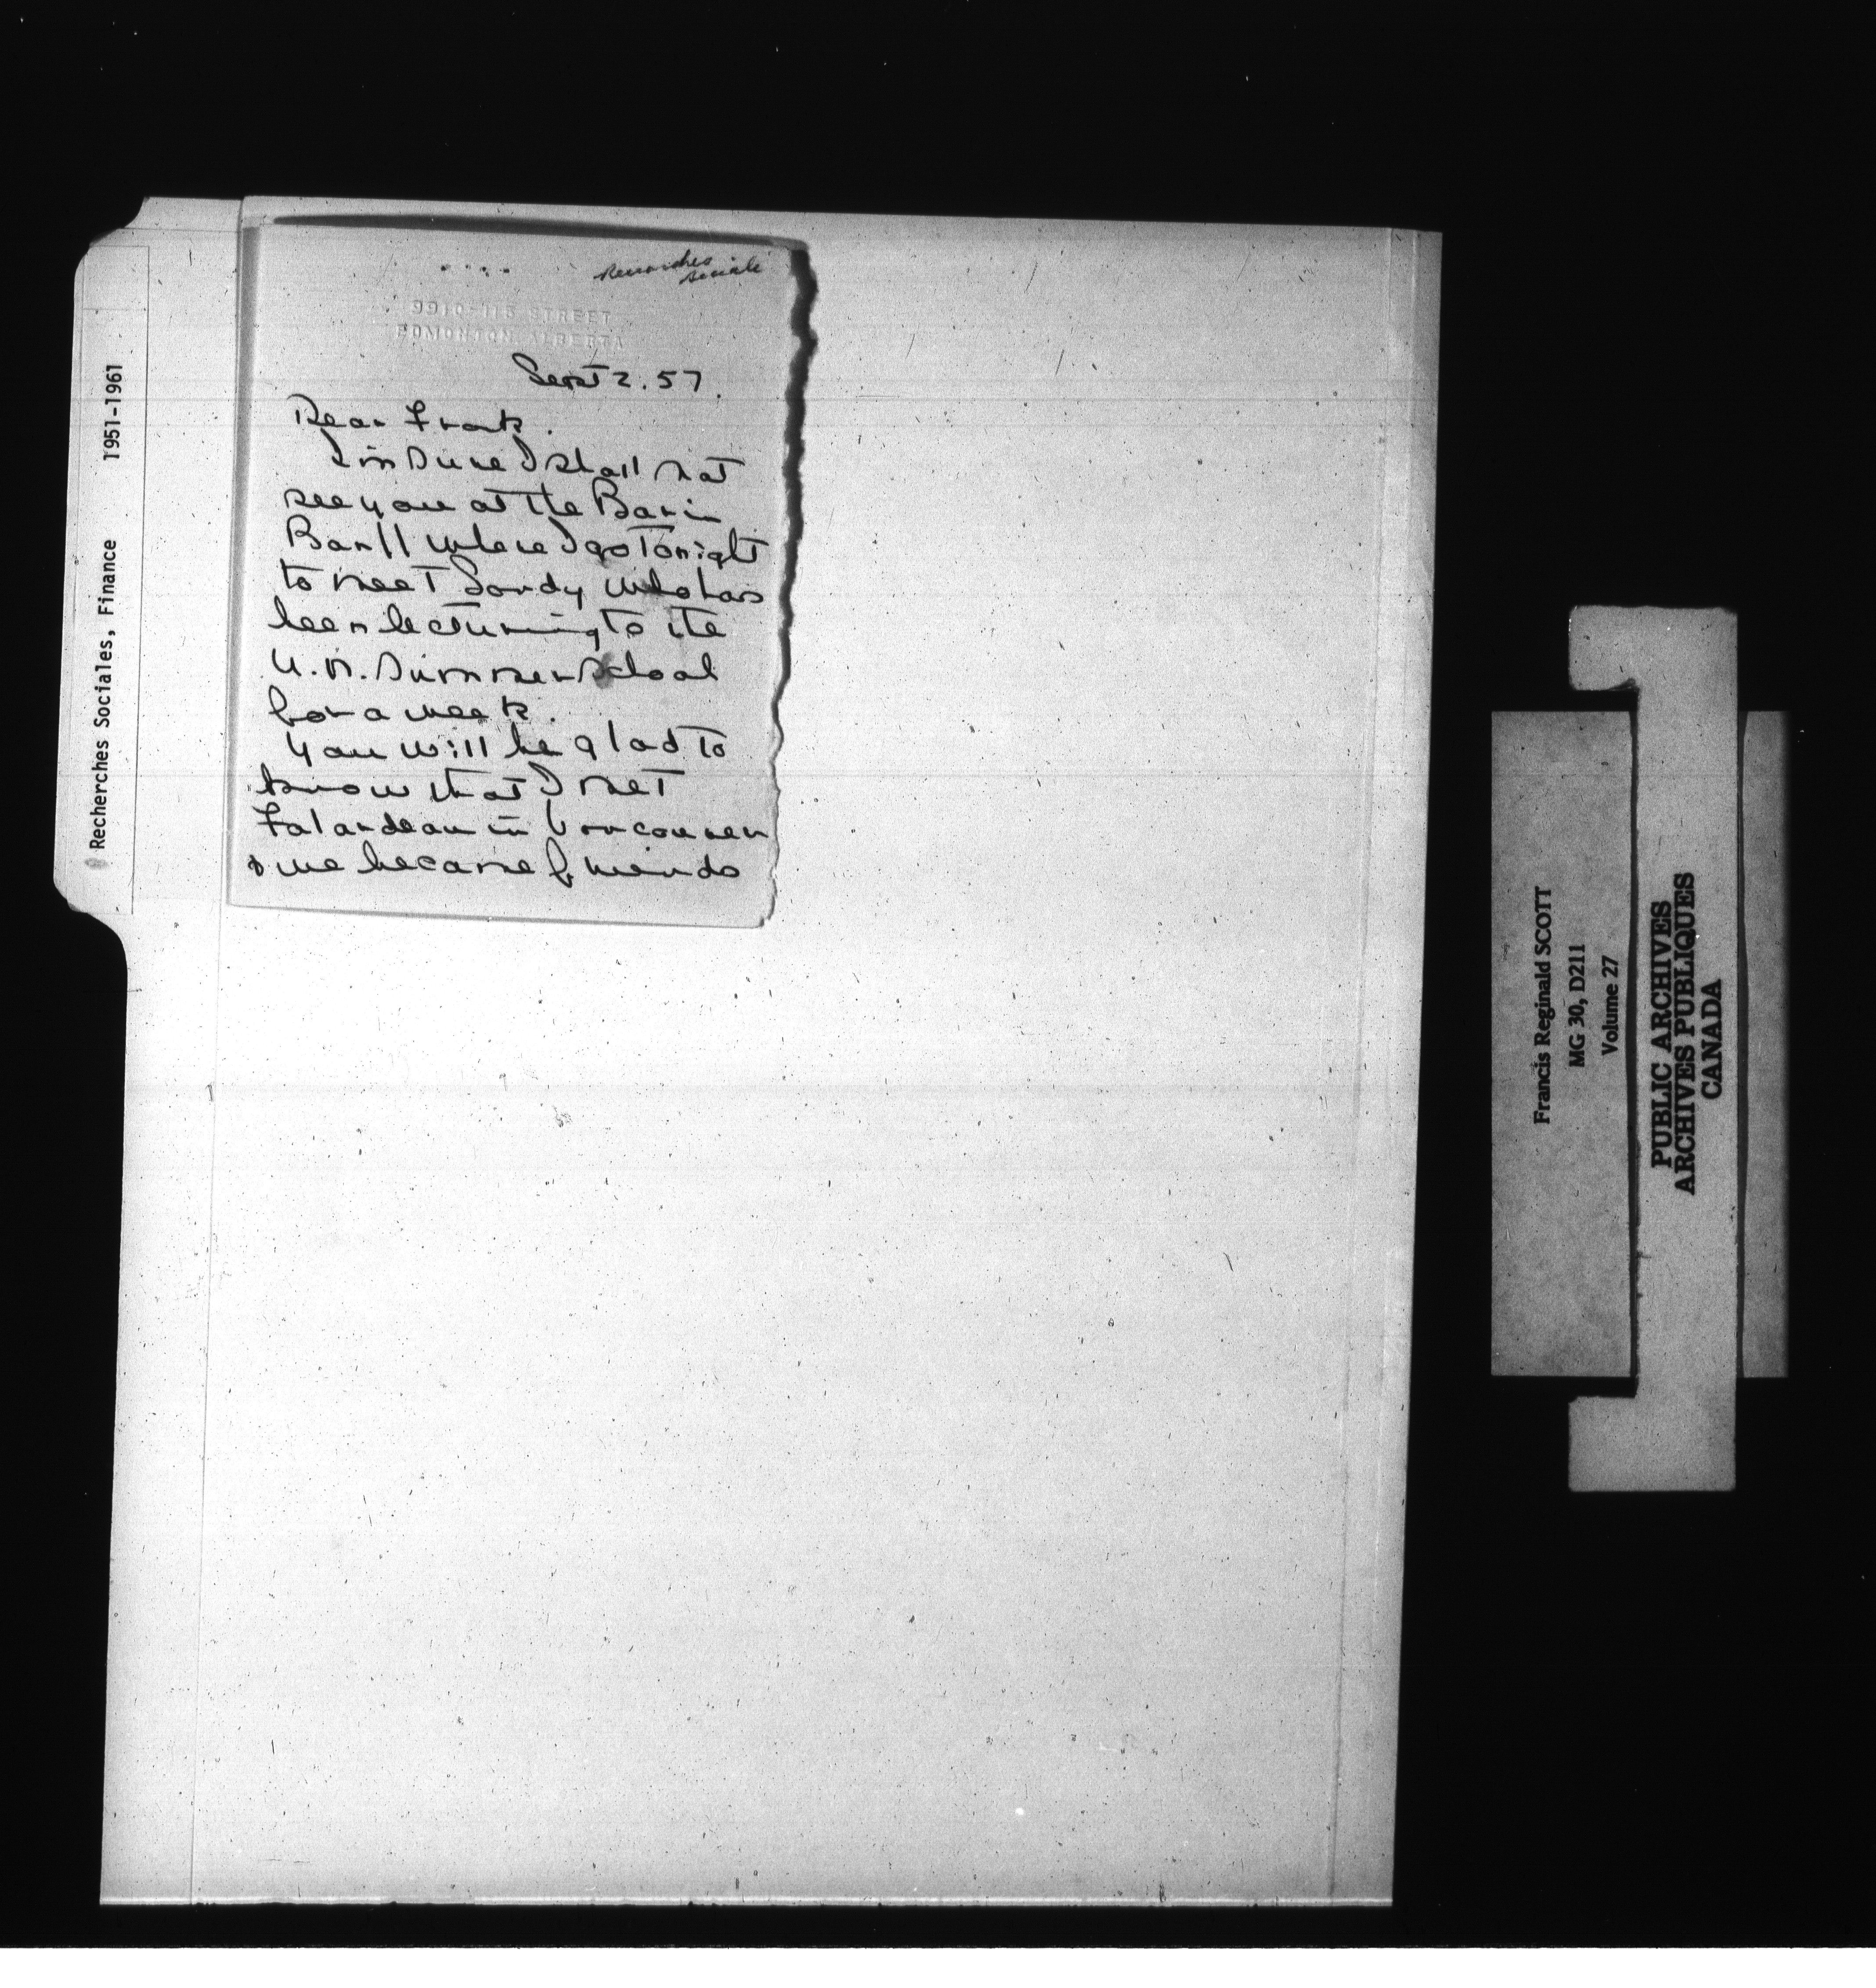 Recherches Sociales, Finance 1951-1961
Recherches
Sociale
9910-115 STREET
EDMONTON, ALBERTA
Sept 2. 57.
Dear Frank.
I'm sure I shall not
see you at the Bar in
Banff where I go tonight
to meet Sandy who has
been lecturing to the
U.N. Summer School
for a week.
You will be glad to
know that I met
Falardeau in Vancouver
& we became friends
Francis Reginald SCOTT
MG 30, D211
Volume 27
PUBLIC ARCHIVES
ARCHIVES PUBLIQUES
CANADA